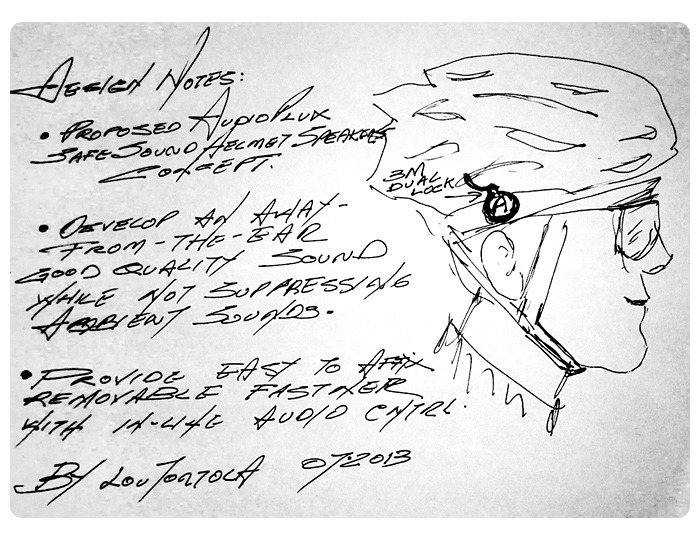 DESIGN NOTES:
• PROPOSED AUDIOFLUX
SAFE-SOUND HELMET SPEAKERS
CONCEPT.
• DEVELOP AN AWAY-
FROM-THE-EAR
GOOD QUALITY SOUND
WHILE NOT SUPPRESSING
AMBIENT SOUNDS.
• PROVIDE EASY TO AFFIX
REMOVABLE FASTNER
WITH IN-LINE AUDIO CNTRL.
BY LOU TORTOLA 07.2013
3M
DUAL
LOCK
A